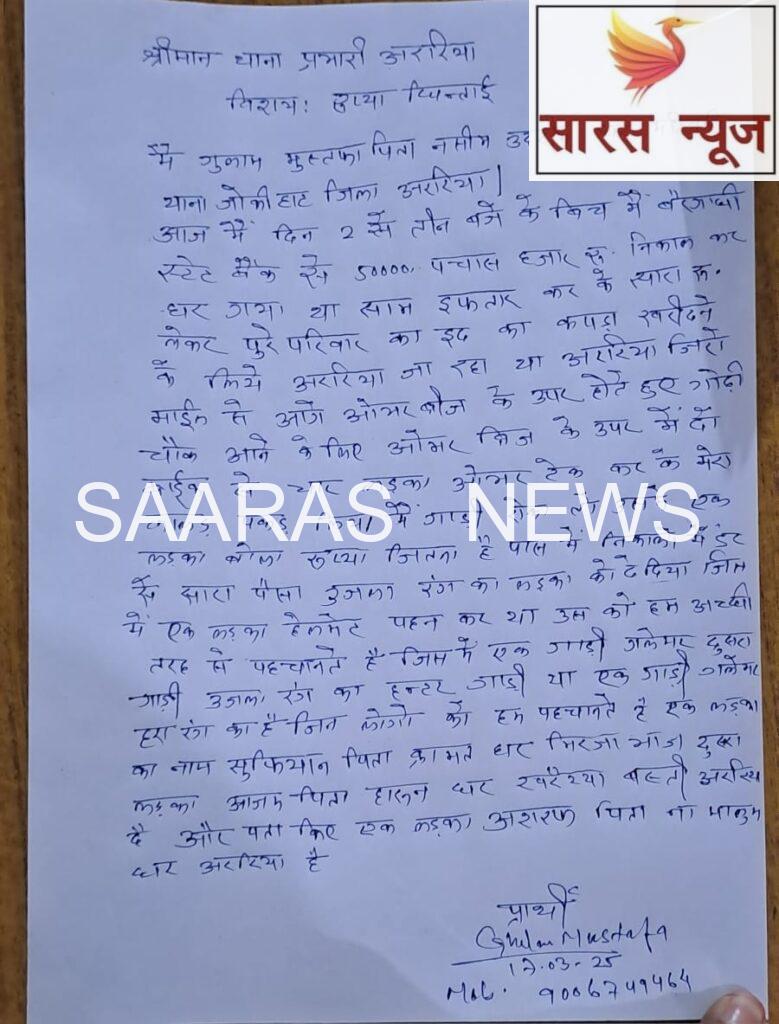 श्रीमान थाना प्रभारी अररिया
विषय: रुप्या छिन्ताई
सारस न्यूज
मैं गुलाम मुस्तफा पिता नसीम
थाना जोकीहाट जिला अररिया|
आज मैं दिन 2 से तीन बजे के बिच में बैरगाछी
स्टेट बैंक से 50000. पचास हजार रू. निकाल कर
घर गया था साम इफतार कर के ग्यारा रू.
लेकर पुरे परिवार का इद का कपड़ा खरीदने
के लिये अररिया जा रहा था अररिया जिरो
माईल से आगे ओभर ब्रीज के उपर होते हुए गोढ़ी
चौक आने के लिए ओभर ब्रिज के उपर में दो
बाईक से चार लड़का ओभर टेक कर के मेरा
SAARAS NEWS
लड़का बोला रूप्या जितना है पास में निकालो में डर
से सारा पैसा उजला रंग का लड़का को दे दिया जिस
में एक लड़का हेलमेट पहन कर था उस को हम अच्छी
तरह से पहचानते है जिस में एक गाड़ी गलेमर दुसरा
गाड़ी उजला रंग का हन्टर गाड़ी था एक गाड़ी गलेमर
हरा रंग का है जिन लोगो को हम पहचानते है एक लड़का
का नाम सुफियान पिता क़ामत घर मिरजा भाज दुसरा
लड़का आजम पिता हारून घर खरैय्या बस्ती अररिया
है और पता किए एक लड़का अशरफ पिता ना मालुम
घर अररिया है
प्रार्थी
Ghulam Mustafa
17-03-25
Mob. 9006749464